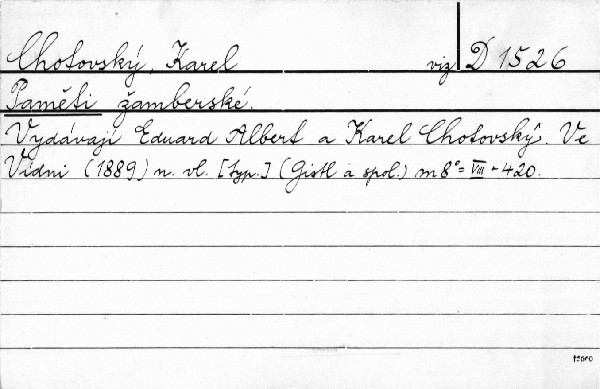 Chotovský, Karel viz D 1526
Paměti žamberské.
Vydávají Eduard Albert a Karel Chotovský. Ve
Vídni (1889) n. vl. [typ.] (Gistl a spol.) m 8° = VIII - 420.